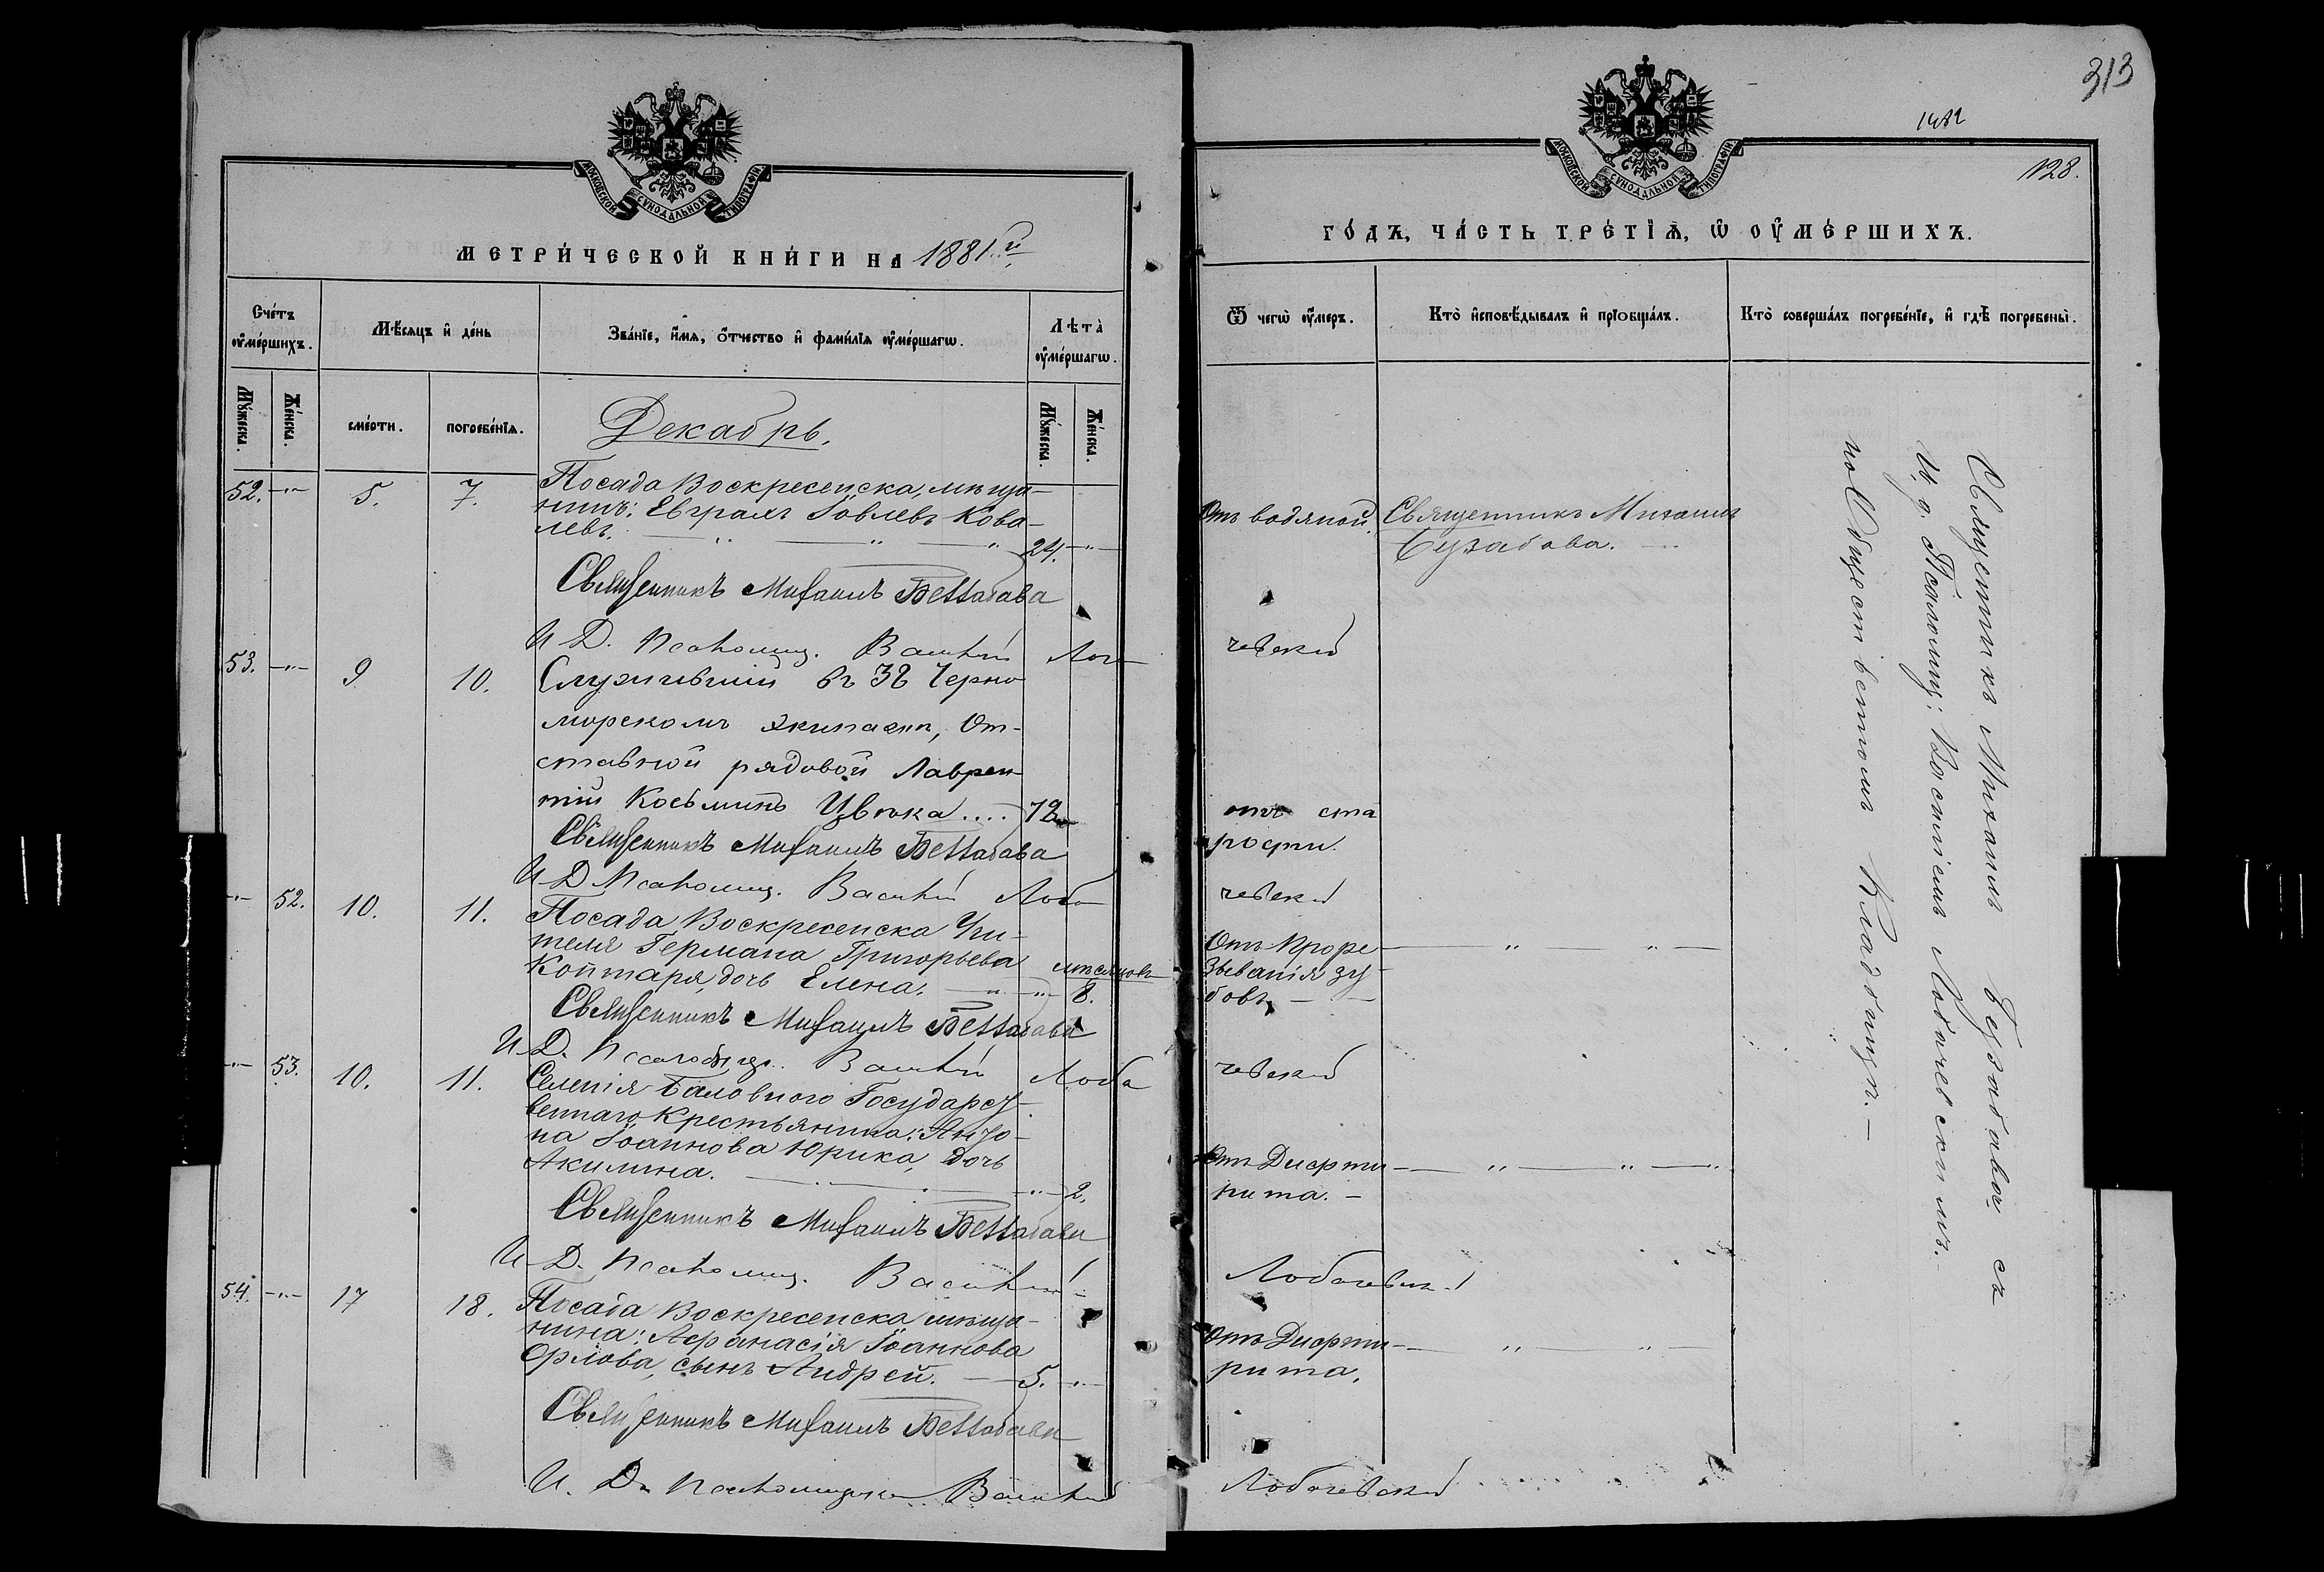 МОСКОВСКОЙ СѴНОДАЛЬНОЙ ТИПОГРАФІИ
МЕТРИ́ЧЕСКОЙ КНИ́ГИ НА 1881.й
Сче́тъ ᲂу҆ме́ршихъ.
Мѣ́сяцъ и҆ де́нь
Зва́нїе, и҆́мѧ, ѻ҆́тчество и҆ фами́лїѧ ᲂу҆ме́ршагѡ.
Лѣта̀ ᲂу҆ме́ршагѡ.
Мꙋ́жеска.
Же́нска.
сме́рти.
погребе́нїѧ.
Мꙋ́жеска.
Же́нска.
Декабрь.
52. —"— 5. 7. Посада Воскресенска, мѣща-
нинъ: Евграхъ Іовлевъ Кова-
левъ. — " — " — " 24. —"—
Священникъ Михаилъ Беззабава
И Д. Псаломщ. Василій Лоба
53. —"— 9 10. Служившій въ 32 Черно
морскомъ экипажѣ, От-
ставной рядовой Лаврен
тій Косьминъ Цвѣка .... 72
Священникъ Михаилъ Беззабава
И Д Псаломщ. Василій Лоба
—"— 52. 10. 11. Посада Воскресенска Учи-
теля Германа Григорьева
Койтаря, дочь Елена. —"— мѣсяцовъ 8.
Священникъ Михаилъ Беззабава
И Д. Псаломщ. Василій Лоба
—"— 53. 10. 11. Селенія Баловного Государст-
веннаго Крестьянина: Анто-
на Іоаннова Юрика, дочь
Акилина. —"— 2.
Священникъ Михаилъ Беззабава
И Д. Псаломщ. Василій
54. —"— 17 18. Посада Воскресенска мѣща-
нина: Афанасія Іоаннова
Орлова, сынъ Андрей. — 5. —"—
Священникъ Михаилъ Беззабава
И. Д. Псаломщика Василій
313
128.
МОСКОВСКОЙ СѴНОДАЛЬНОЙ ТИПОГРАФІИ
ГО́ДЪ, ЧА́СТЬ ТРЕ́ТЇѦ, Ѡ ОУ҆МЕ́РШИХЪ.
Ѿ чегѡ̀ ᲂу҆́меръ.
Кто̀ и҆сповѣ́дывалъ и҆ прїѻбща́лъ.
Кто̀ соверша́лъ погребе́нїе, и҆ гдѣ̀ погребены̀.
Отъ водяной. Священникъ Михаилъ
Беззабава.
чевскій
отъ ста
рости.
чевскій
Отъ Проре — " — " —
зыванія зу
бовъ —
чевскій
Отъ Дифти — " — " — "
рита. —
Лобачевскій
Отъ Дифти — " — " —
рита.
Лобачевскій
Священникъ Михаилъ Беззабава съ
И. д. Псаломщ: Василіемъ Лобачевскимъ. —
на Общественномъ Кладбищѣ. —